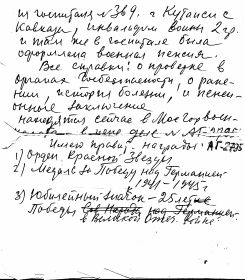 из госпиталя № 369. г. Кутаиси с
Кавказа, инвалидом войны 2 гр.
и там же в госпитале была
оформлена военная пенсия.
Все справки: о проверке в
органах Госбезопасности, о ране-
нии, история болезни, и пенси-
онное заключение
находятся сейчас в Мосгорвоен-
в деле № АГ-
Имею прав. награды: АГ-2795
1) Орден Красной Звезды
2) Медаль За Победу над Германией
1941-1945 г.
3) Юбилейный значок - 25 летие
Победы над Германией
в Великой Отеч. войне